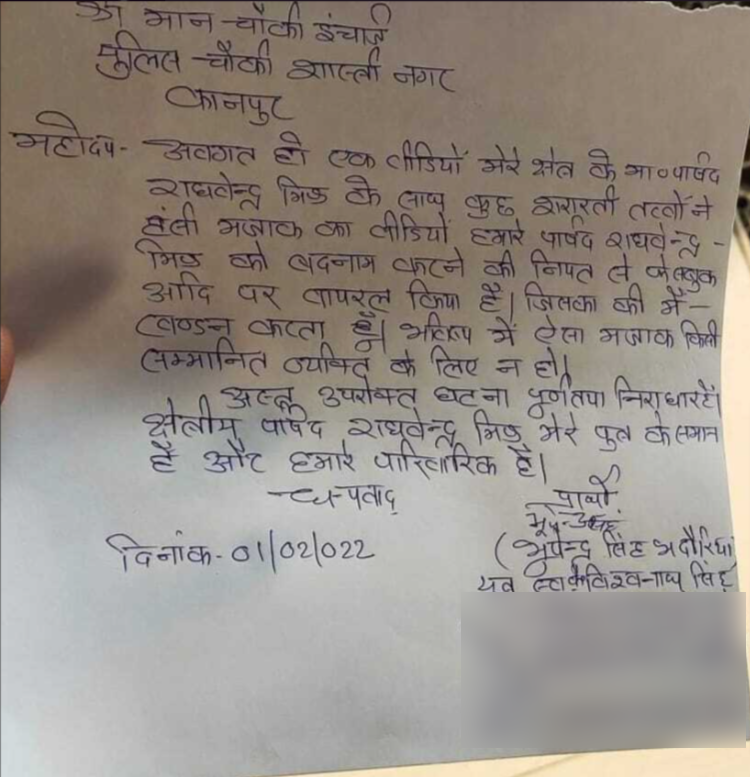 श्री मान चौकी इंचार्ज
पुलिस चौकी शास्त्री नगर
कानपुर
महोदय- अवगत हो एक वीडियों मेरे क्षेत्र के मा० पार्षद
राघवेन्द्र मिश्र के साथ कुछ शरारती तत्वों ने
हंसी मजाक का वीडियों हमारे पार्षद राघवेन्द्र -
मिश्र को बदनाम करने की नियत से फेसबुक
आदि पर वायरल किया है। जिसका की मैं -
खण्डन करता हूँ। भविष्य में ऐसा मजाक किसी
सम्मानित व्यक्ति के लिए न हो।
अस्तु उपरोक्त घटना पूर्णतया निराधार है।
क्षेत्रीय पार्षद राघवेन्द्र मिश्र मेरे पुत्र के समान
हैं और हमारे पारिवारिक हैं।
धन्यवाद
प्रार्थी
दिनांक- 01/02/022
(भूपेन्द्र सिंह भदौरिया)
स्व० विश्वनाथ सिंह